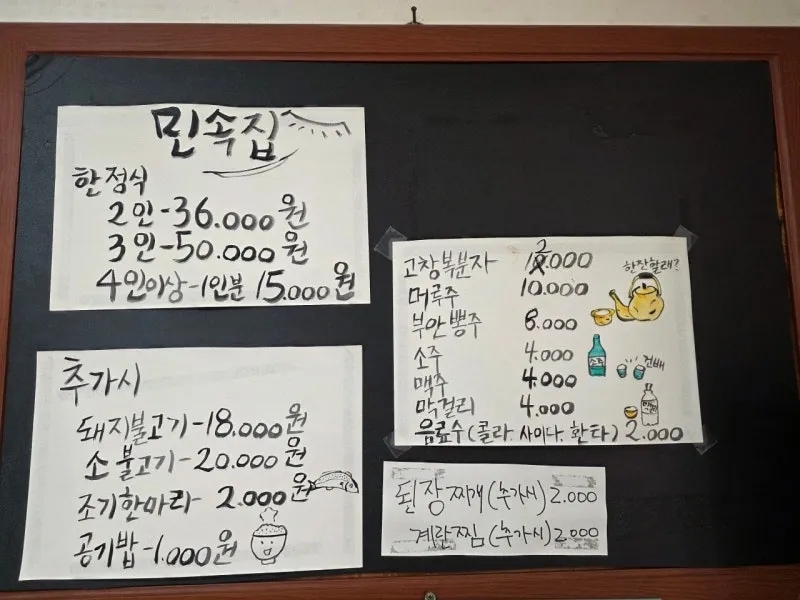 민속집
한정식
2인-36.000원
3인-50.000원
4인이상-1인분 15.000원
추가시
돼지불고기-18.000원
소불고기-20.000원
조기한마리-2.000원
공기밥-1.000원
고창복분자 12.000
머루주 10.000
부안뽕주 8.000
소주 4.000
맥주 4.000
막걸리 4.000
음료수(콜라.사이다.환타) 2.000
한잔할래?
소주
건배
된장찌개(추가시) 2.000
계란찜(추가시) 2.000